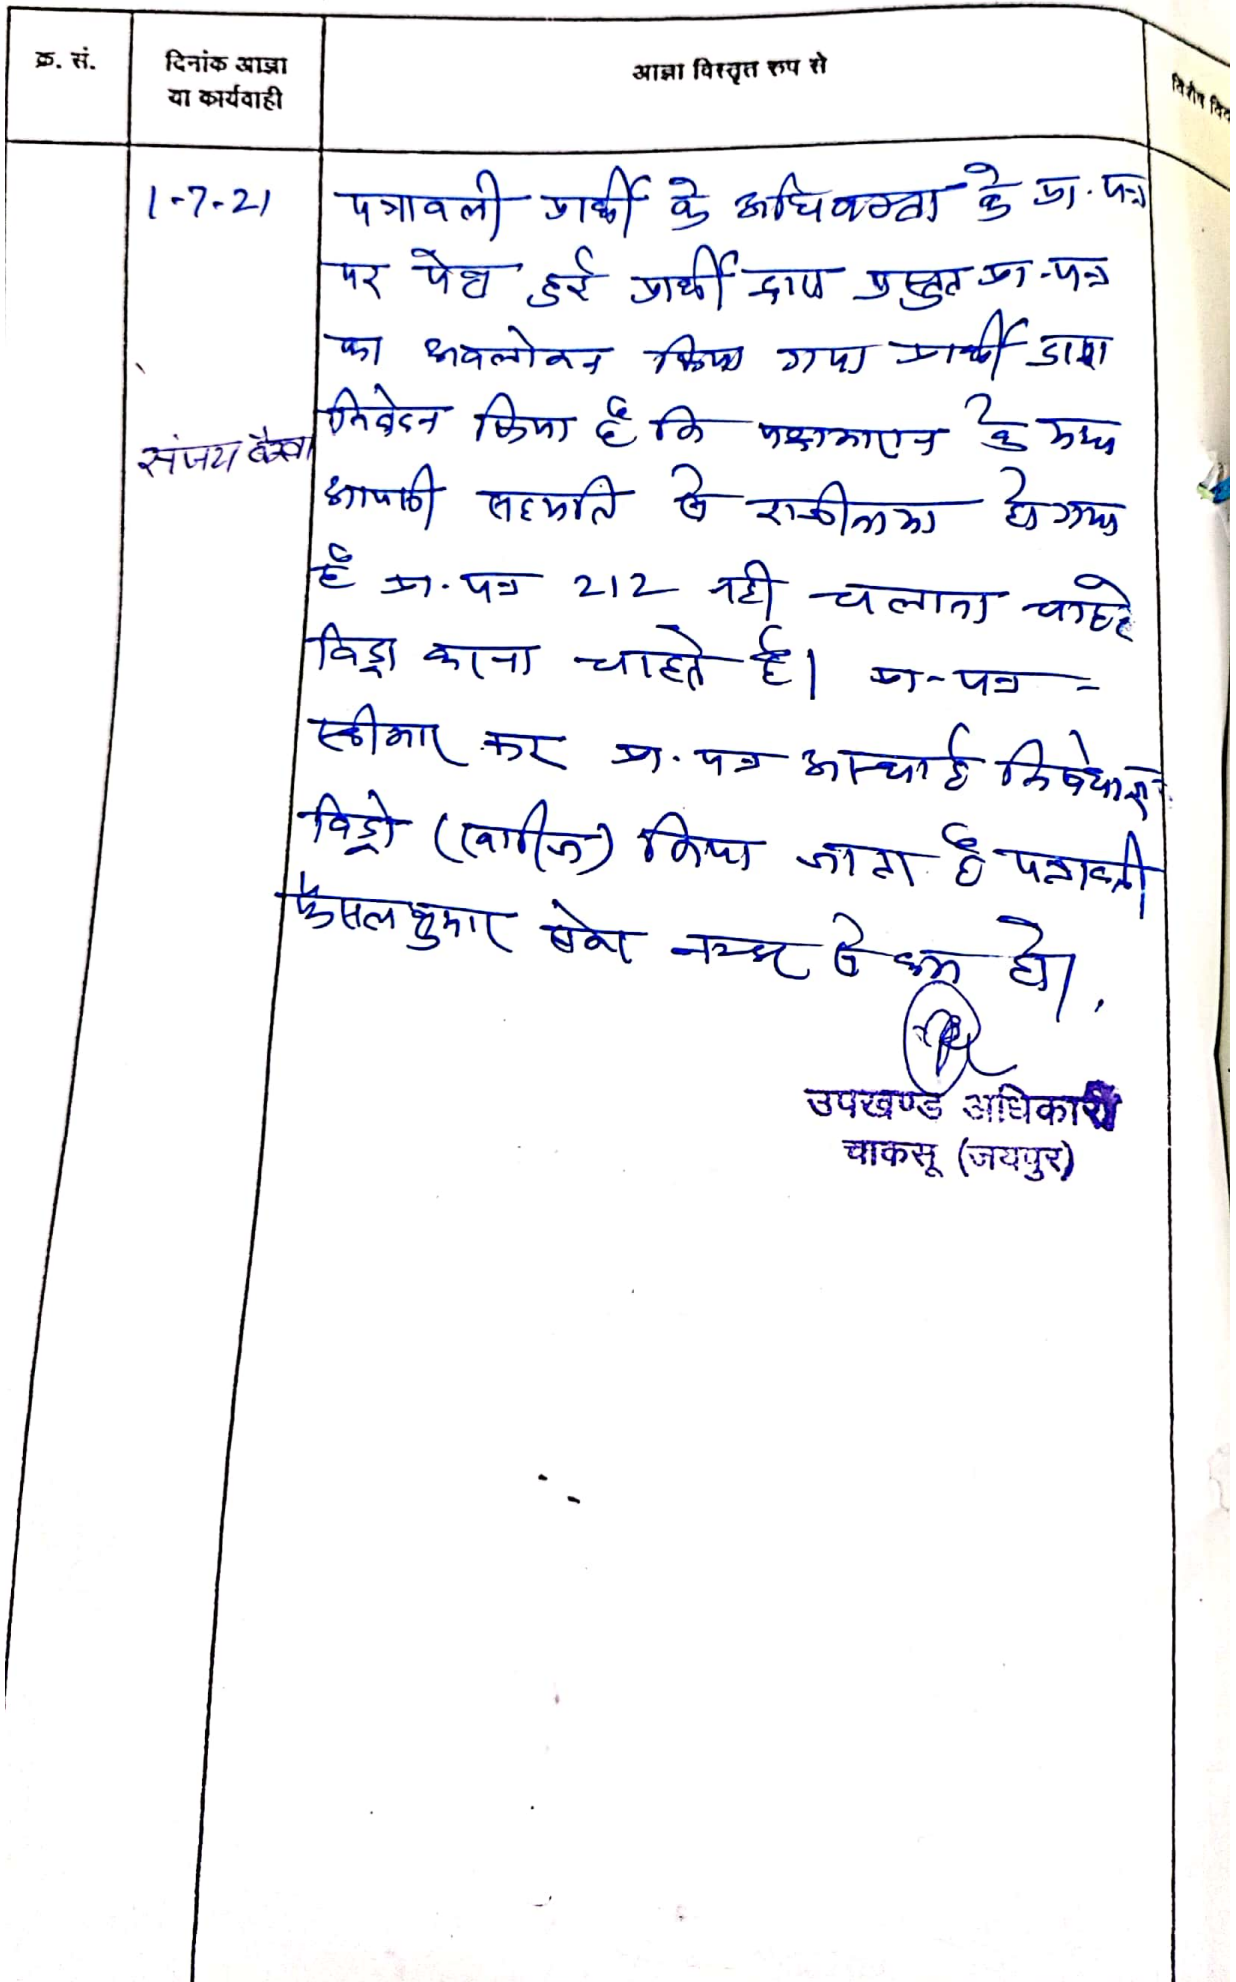 क्र. सं.
दिनांक आज्ञा
या कार्यवाही
आज्ञा विस्तृत रूप से
विशेष
1-7-21
पत्रावली प्रार्थी के अधिवक्ता के प्रा. पत्र
पर पेश हुई प्रार्थी द्वारा प्रस्तुत प्रा-पत्र
का अवलोकन किया गया प्रार्थी द्वारा
निवेदन किया है कि पक्षकारान के मध्य
संजय बैरवा
आपसी सहमति से राजीनामा हो गया
है प्रा. पत्र 212 नही चलाना चाहते
विड्रा करना चाहते है। प्रा-पत्र -
स्वीकार कर प्रा. पत्र अस्थाई निषेधाज्ञा
विड्रो (खारीज) किया जाता है पत्रावली
फैसल शुमार होकर नम्बर से कम हो।
उपखण्ड अधिकारी
चाकसू (जयपुर)